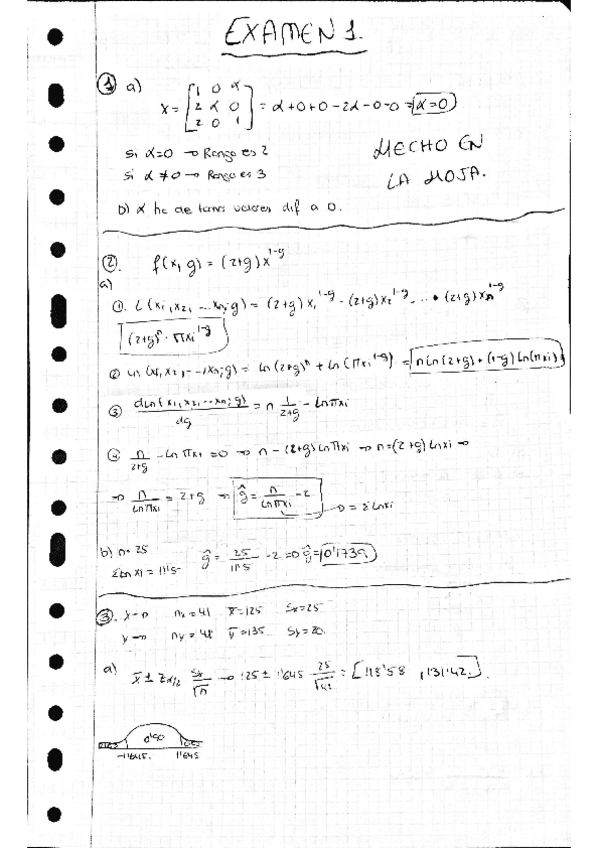 EXAMEN 1.
① a) X = [1 0 α / 2 α 0 / 2 0 1] = α+0+0-2α-0-0 = α=0
Si α=0 → Rango es 2
Si α≠0 → Rango es 3
HECHO EN
LA HOJA.
b) α ha de tomar valores dif a 0.
② f(x,g) = (2+g)x^1-g
a)
①. L(x1,x2,...xn;g) = (2+g)x1^1-g · (2+g)x2^1-g ... · (2+g)xn^1-g
(2+g)^n · πxi^1-g
② Ln(x1,x2,...xn;g) = Ln(2+g)^n + Ln(πxi^1-g) = nLn(2+g)+(1-g)Ln(πxi)
③ dLn(x1,x2,...xn;g)/dg = n 1/2+g - Lnπxi
④ n/2+g - Ln πxi = 0 → n-(2+g)Lnπxi → n=(2+g)Lnxi →
→ n/Lnπxi = 2+g → ĝ = n/Lnπxi - 2 → = ΣLnxi
b) n=25 ĝ = 25/11'5 - 2 → ĝ = 0'1739
ΣLnxi = 11'5
③. x → nx=41 x̄=125 Sx=25
y → ny=48 ȳ=135 Sy=20.
a) x̄ ± Zα/2 Sx/√n → 125 ± 1'645 25/√41 = [118'58 , 131'42].
0'90
-1'645. 1'645